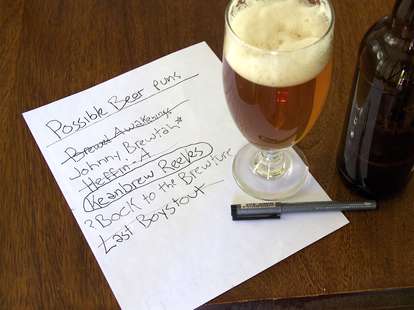 Possible Beer puns
Brewed Awakening
Johnny Brewtah*
Heffin'-A
Keanbrew Reeves
? Bock to the Brewture
Last Boystout